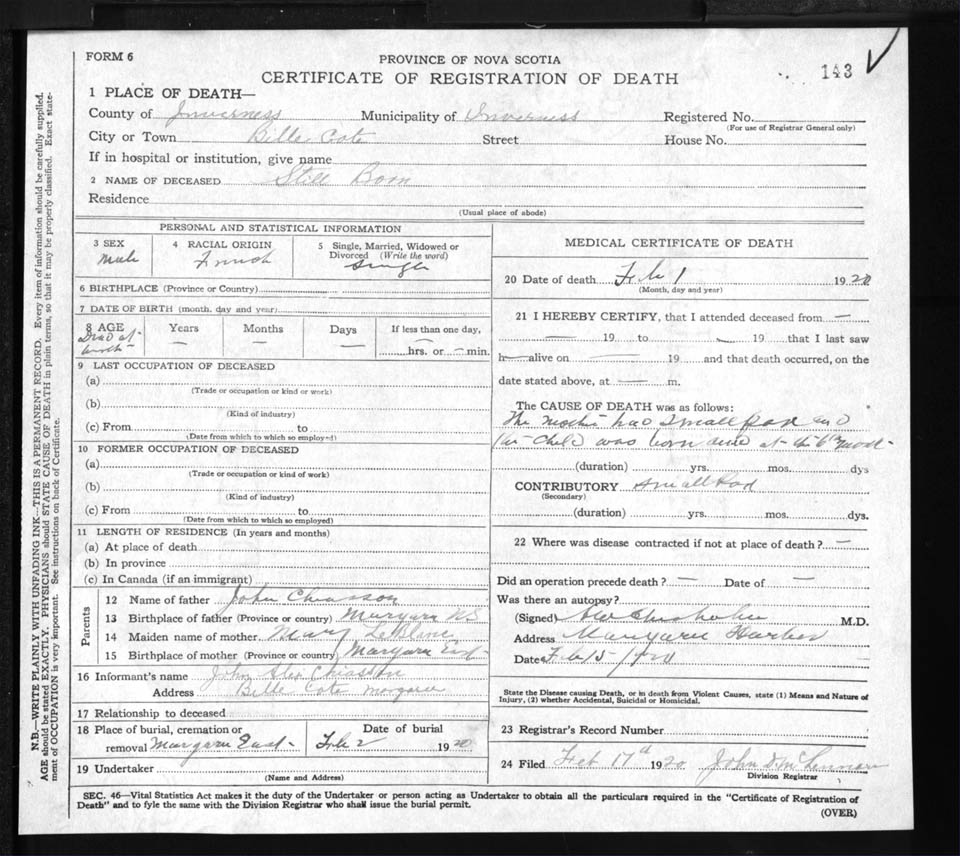 FORM 6
PROVINCE OF NOVA SCOTIA
CERTIFICATE OF REGISTRATION OF DEATH
143
1 PLACE OF DEATH—
County of Inverness Municipality of Inverness Registered No.
(For use of Registrar General only)
City or Town Belle Cote Street House No.
If in hospital or institution, give name
2 NAME OF DECEASED Still Born
Residence
(Usual place of abode)
PERSONAL AND STATISTICAL INFORMATION
3 SEX 4 RACIAL ORIGIN 5 Single, Married, Widowed or
Divorced (Write the word)
Male French Single
6 BIRTHPLACE (Province or Country)
7 DATE OF BIRTH (month, day and year)
8 AGE Years Months Days If less than one day,
Dead at
birth — — — hrs. or — min.
9 LAST OCCUPATION OF DECEASED
(a)
(Trade or occupation or kind or work)
(b)
(Kind of industry)
(c) From to
(Date from which to which so employed)
10 FORMER OCCUPATION OF DECEASED
(a)
(Trade or occupation or kind of work)
(b)
(Kind of industry)
(c) From to
(Date from which to which so employed)
11 LENGTH OF RESIDENCE (In years and months)
(a) At place of death
(b) In province
(c) In Canada (if an immigrant)
Parents
12 Name of father John Chiasson
13 Birthplace of father (Province or Country) Margaree N.S.
14 Maiden name of mother Mary LeBlanc
15 Birthplace of mother (Province or country) Margaree East
16 Informant's name John Alex Chiasson
Address Belle Cote Margaree
17 Relationship to deceased
18 Place of burial, cremation or Date of burial
removal Margaree East Feb 2 1920
19 Undertaker
(Name and Address)
MEDICAL CERTIFICATE OF DEATH
20 Date of death Feb 1 1920
(Month, day and year)
21 I HEREBY CERTIFY, that I attended deceased from —
— 19 to — 19 that I last saw
h— alive on — 19 and that death occurred, on the
date stated above, at — m.
The CAUSE OF DEATH was as follows:
The mother had Small Pox and
child was born dead at the 6th month
(duration) yrs. mos. dys
CONTRIBUTORY Small Pox
(Secondary)
(duration) yrs. mos. dys.
22 Where was disease contracted if not at place of death? —
Did an operation precede death? — Date of —
Was there an autopsy?
(Signed) Chisholm M.D.
Address Margaree Harbor
Date Feb 5/1920
State the Disease causing Death, or in death from Violent Causes, state (1) Means and Nature of
Injury, (2) whether Accidental, Suicidal or Homicidal.
23 Registrar's Record Number
24 Filed Feb 17th 1920 John D. McLennan
Division Registrar
SEC. 46—Vital Statistics Act makes it the duty of the Undertaker or person acting as Undertaker to obtain all the particulars required in the "Certificate of Registration of
Death" and to fyle the same with the Division Registrar who shall issue the burial permit.
(OVER)
N.B.—WRITE PLAINLY WITH UNFADING INK—THIS IS A PERMANENT RECORD. Every item of information should be carefully supplied.
AGE should be stated EXACTLY. PHYSICIANS should STATE CAUSE OF DEATH in plain terms, so that it may be properly classified. Exact state-
ment of OCCUPATION is very important. See instructions on back of Certificate.